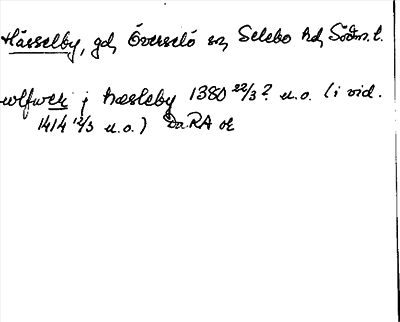 Hässelby, gd, Överselö sn, Selebo hd, Södm. l.
ulfwer j hæsleby 1380 22/3? u.o. (i vid.
1414 12/3 u.o.) DaRA or